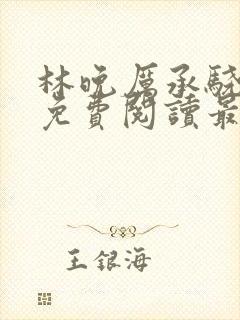 林晚厲承駿
免費閱讀最
王銀海